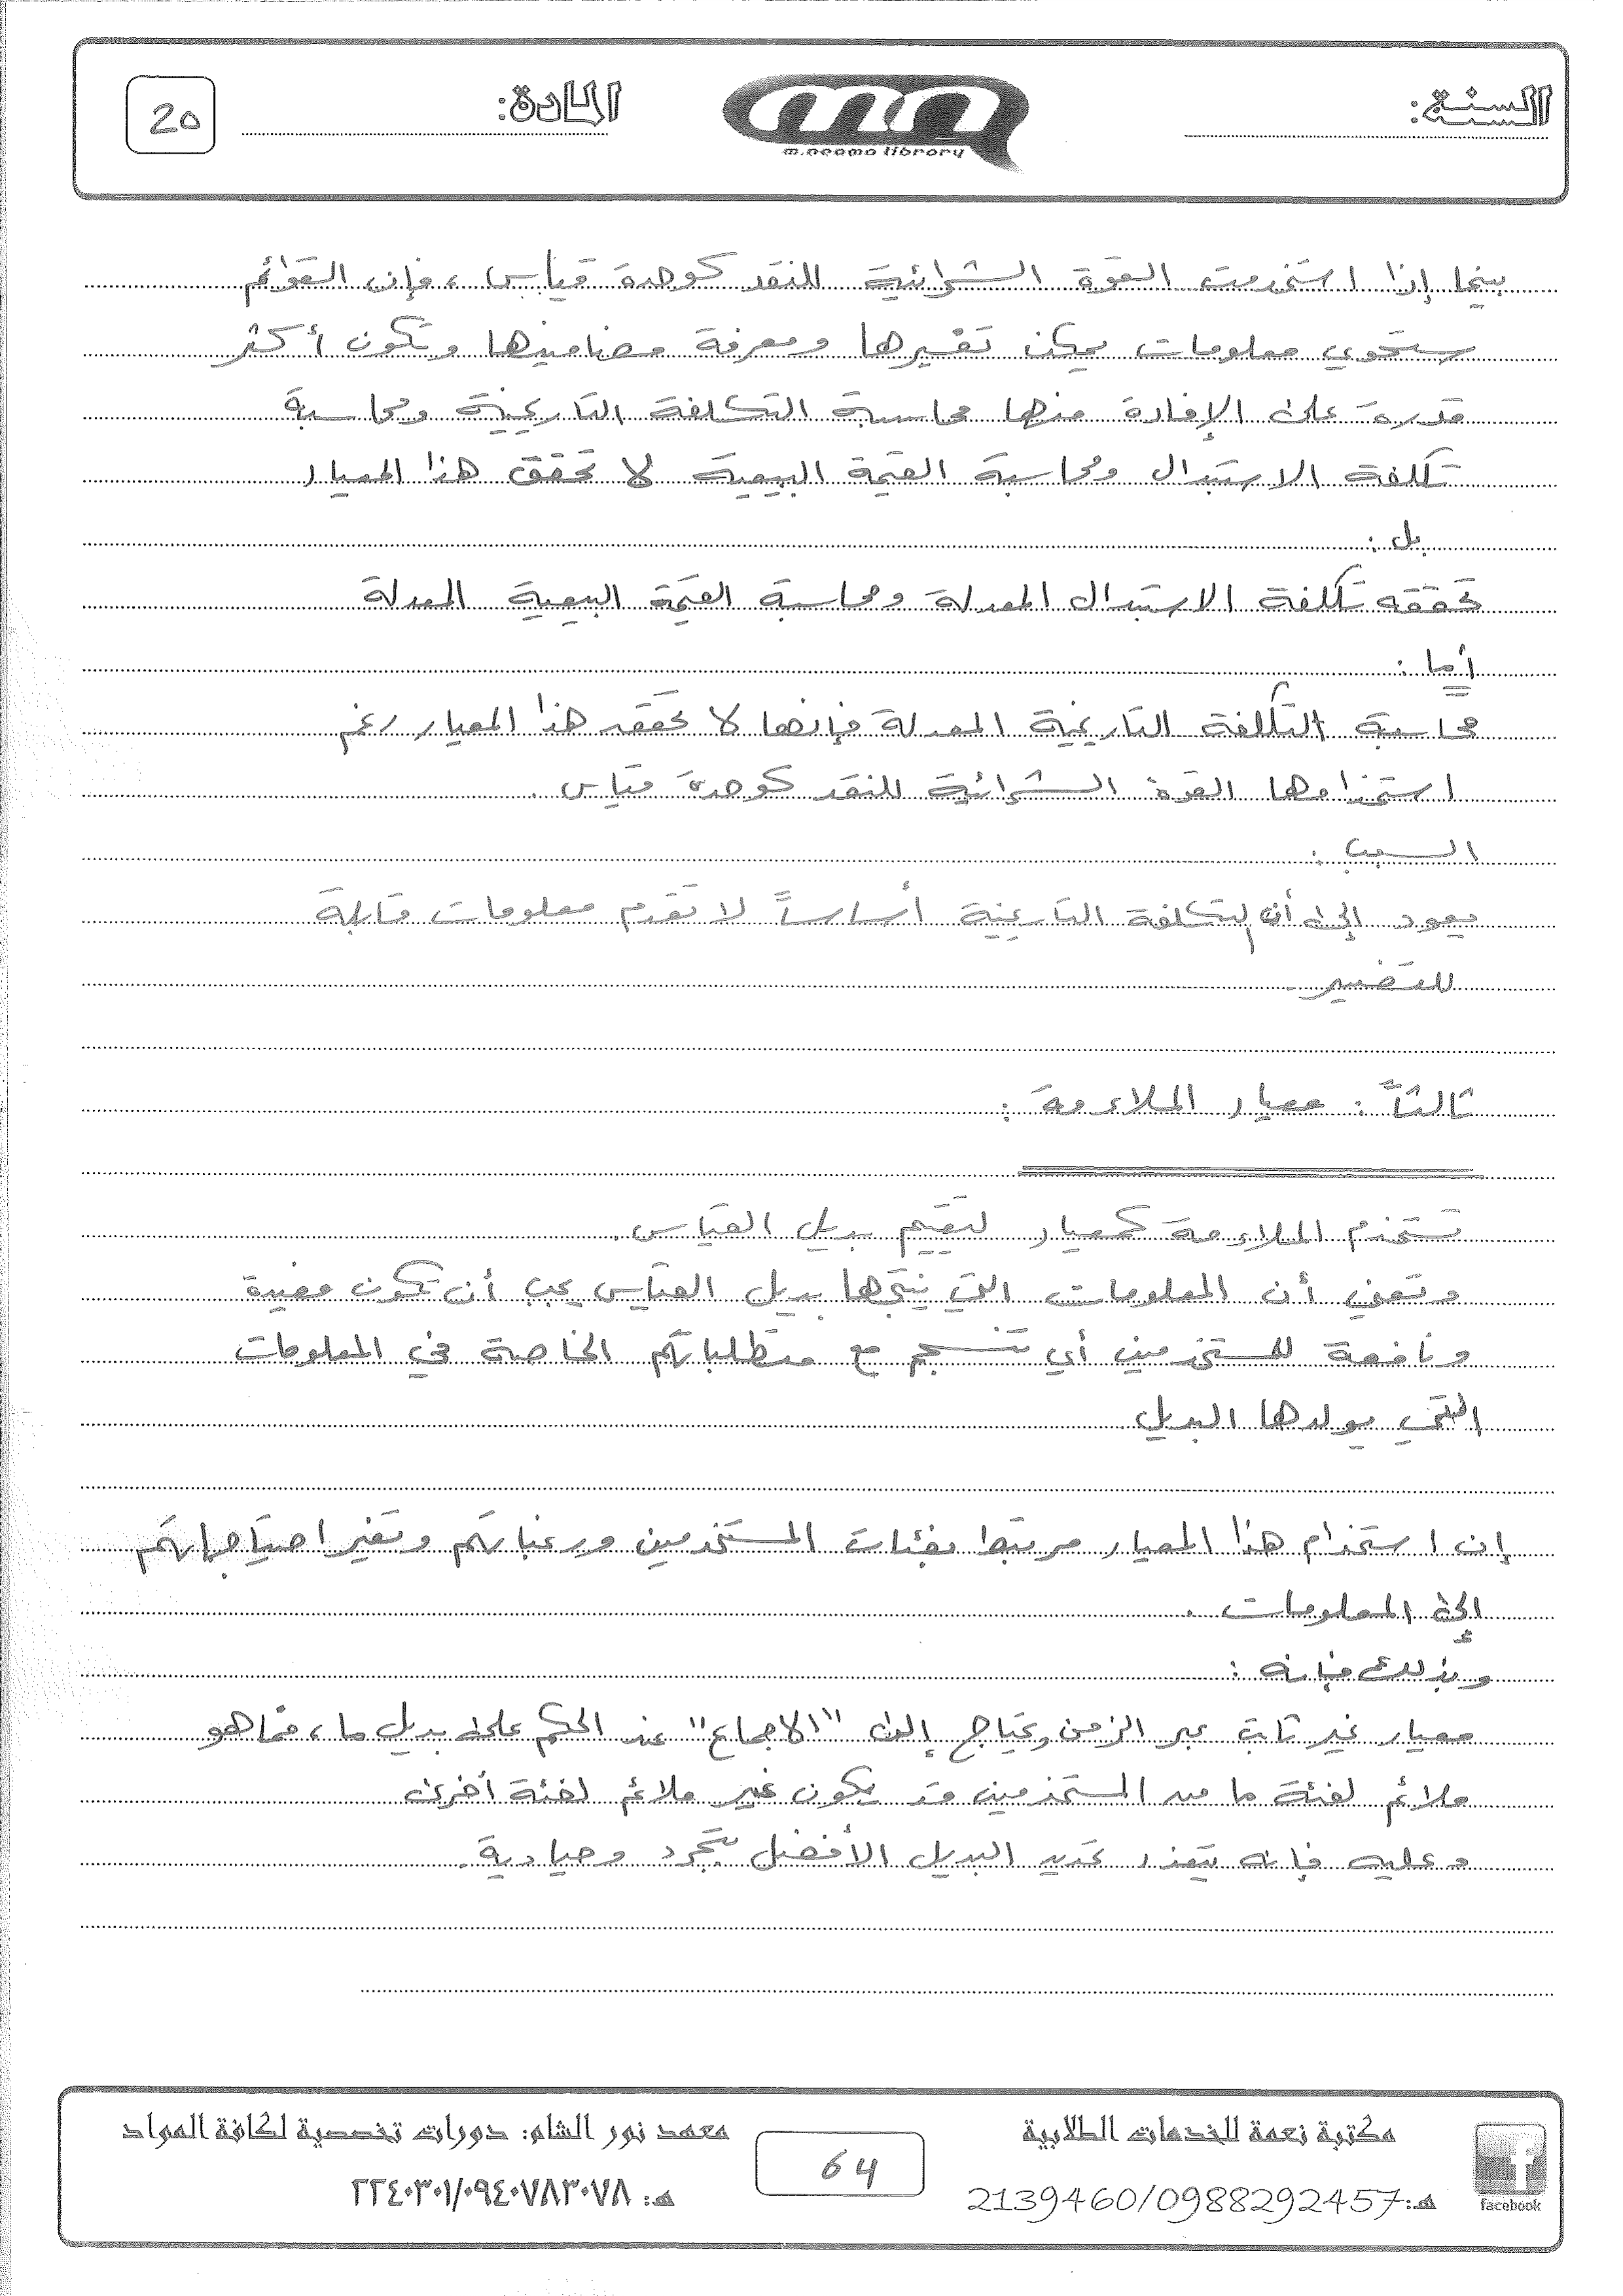 السنة:
m.neama library
المادة:
20
بينما إذا استخدمت القوة الشرائية للنقد كوحدة قياس، فإن القوائم
ستحوي معلومات يمكن تفسيرها ومعرفة مضامينها وتكون أكثر
قدرة على الإفادة منها محاسبة التكلفة التاريخية ومحاسبة
تكلفة الاستبدال ومحاسبة القيمة البيعية لا تحقق هذا المعيار
بل :
تحققه تكلفة الاستبدال المعدلة ومحاسبة القيمة البيعية المعدلة
أما :
محاسبة التكلفة التاريخية المعدلة فإنها لا تحققه هذا المعيار رغم
استخدامها القوة الشرائية للنقد كوحدة قياس .
السبب :
يعود إلى أن التكلفة التاريخية أساساً لا تقدم معلومات قابلة
للتفسير .
ثالثاً : معيار الملاءمة :
تستخدم الملاءمة كمعيار لتقييم بديل القياس .
وتعني أن المعلومات التي ينتجها بديل القياس يجب أن تكون مفيدة
ونافعة للمستخدمين أي تنسجم مع متطلباتهم الخاصة في المعلومات
التي يولدها البديل
إن استخدام هذا المعيار مرتبط بفئات المستخدمين ورغباتهم وتغير احتياجاتهم
إلى المعلومات .
وبذلك فإنه :
معيار غير ثابت عبر الزمن ويحتاج إلى "الاجماع" عند الحكم على بديل ما، فما هو
ملائم لفئة ما من المستخدمين قد يكون غير ملائم لفئة أخرى
وعليه فإنه يتعذر تحديد البديل الأفضل بتجرد وحيادية .
مكتبة نعمة للخدمات الطلابية
هـ: 2139460/0988292457
facebook
64
معهد نور الشام: دورات تخصصية لكافة المواد
هـ: ٢٢٤٠٣٠١/٠٩٤٠٧٨٣٠٧٨